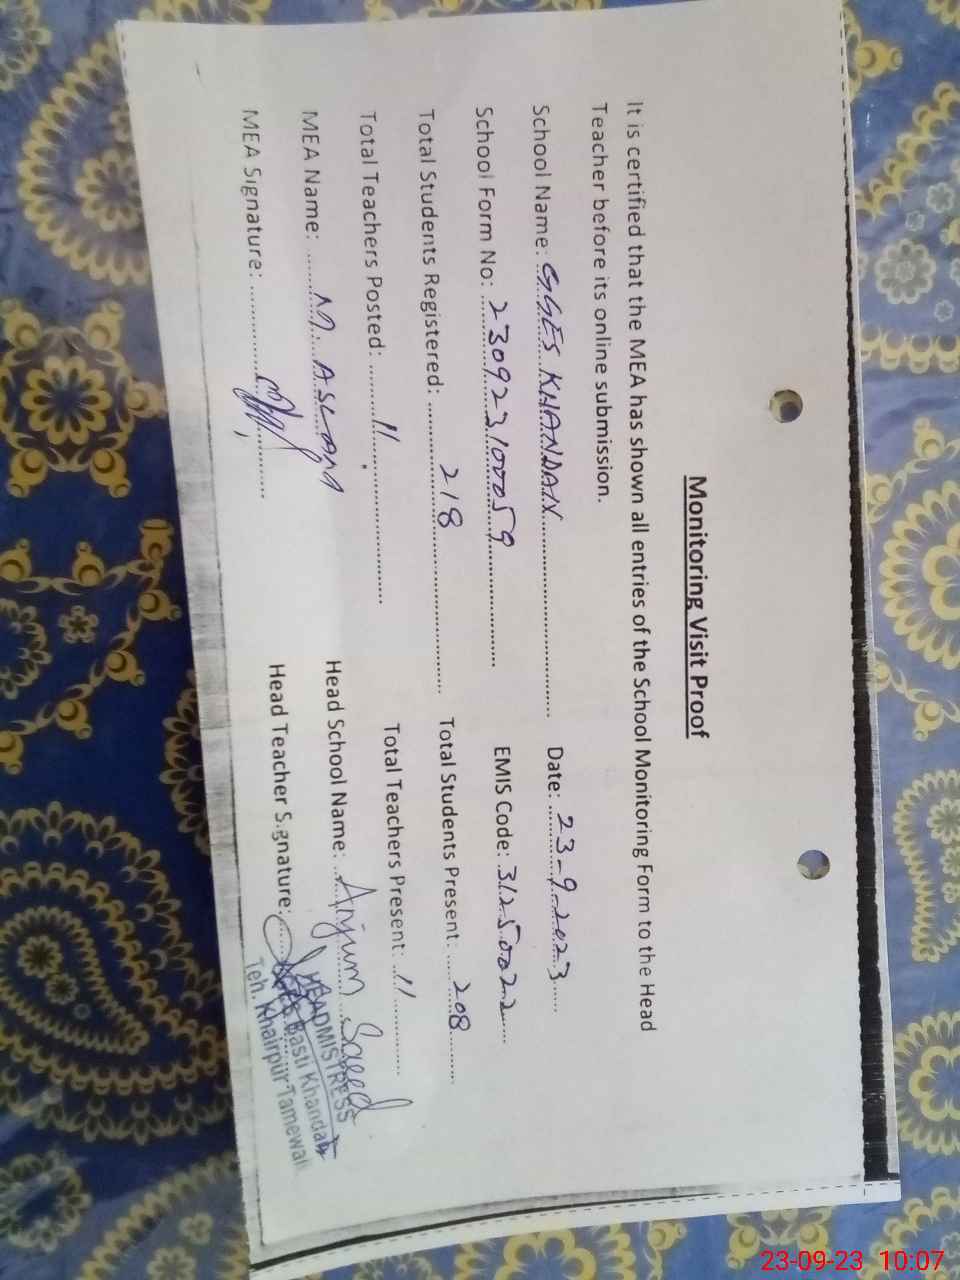 Monitoring Visit Proof
It is certified that the MEA has shown all entries of the School Monitoring Form to the Head
Teacher before its online submission.
School Name: GGES KHANDAN Date: 23-9-2023
School Form No: 230923100059 EMIS Code: 31250022
Total Students Registered: 218 Total Students Present: 208
Total Teachers Posted: 11 Total Teachers Present: 11
MEA Name: M. ASLAM Head School Name: Anjum Saeed
MEA Signature: Head Teacher Signature:
HEADMISTRESS
GGES Basti Khandan
Teh. Khairpur Tamewali
23-09-23 10:07